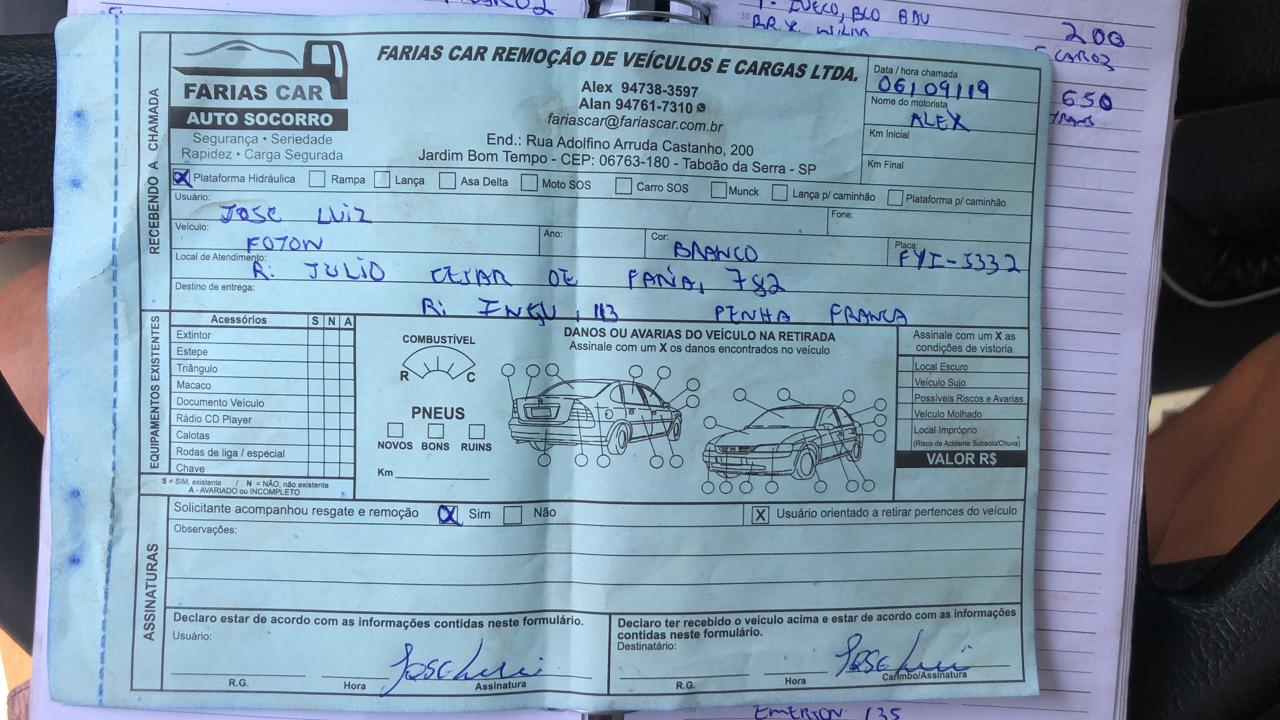 IVECO, BCO BAU
200
650
FARIAS CAR
AUTO SOCORRO
Segurança • Seriedade
Rapidez • Carga Segurada
FARIAS CAR REMOÇÃO DE VEÍCULOS E CARGAS LTDA.
Alex 94738-3597
Alan 94761-7310
fariascar@fariascar.com.br
End.: Rua Adolfino Arruda Castanho, 200
Jardim Bom Tempo - CEP: 06763-180 - Taboão da Serra - SP
Data / hora chamada
06/09/19
Nome do motorista
ALEX
Km Inicial
Km Final
RECEBENDO A CHAMADA
X Plataforma Hidráulica Rampa Lança Asa Delta Moto SOS Carro SOS Munck Lança p/ caminhão Plataforma p/ caminhão
Usuário: JOSE LUIZ Fone:
Veículo: FOTON Ano: Cor: BRANCO Placa: FYI-5332
Local de Atendimento: R: JULIO CESAR DE FARIA, 782
Destino de entrega: R: , 113 PENHA FRANCA
EQUIPAMENTOS EXISTENTES
Acessórios S N A
Extintor
Estepe
Triângulo
Macaco
Documento Veículo
Rádio CD Player
Calotas
Rodas de liga / especial
Chave
S = SIM, existente / N = NÃO, não existente
A - AVARIADO ou INCOMPLETO
COMBUSTÍVEL
R C
PNEUS
NOVOS BONS RUINS
Km
DANOS OU AVARIAS DO VEÍCULO NA RETIRADA
Assinale com um X os danos encontrados no veículo
Assinale com um X as
condições de vistoria
Local Escuro
Veículo Sujo
Possíveis Riscos e Avarias
Veículo Molhado
Local Impróprio
(Risco de Acidente Subsolo/Chuva)
VALOR R$
ASSINATURAS
Solicitante acompanhou resgate e remoção X Sim Não X Usuário orientado a retirar pertences do veículo
Observações:
Declaro estar de acordo com as informações contidas neste formulário.
Usuário:
Jose Luiz
R.G. Hora Assinatura
Declaro ter recebido o veículo acima e estar de acordo com as informações
contidas neste formulário.
Destinatário:
Jose Luiz
R.G. Hora Carimbo/Assinatura
EMERSON 135